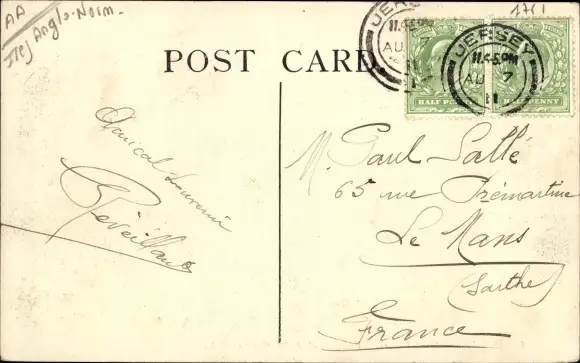 AA
Iles Anglo-Norm.
POST CARD
JERSEY
11.45PM
AU 7
11
JERSEY
11.45PM
AU 7
11
HALFPENNY
HALFPENNY
Amical Souvenir
M. Paul Sallé
65 rue Prémartine
Le Mans
(Sarthe)
France